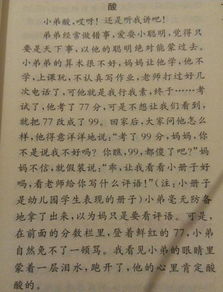 酸
小弟酸,哎呀!还是听我讲吧!
弟弟经常做错事,爱耍小聪明,觉得只
要是天下事,以他的聪明绝对能蒙过去。
小弟弟的算术很不好,妈妈让他学,他不
学,上课玩,不认真写作业,老师打过好几
次电话了,可他就是我行我素,终于……考
试了,他考了77分,可是不想让我们看到,
就把77改成了99。回家后,大家问他怎么
样,他得意洋洋地说,“考了99分,妈妈,你
不是说我不好吗?你瞧,99,都傻了吧?”妈妈
不信,就假装说,“乖,让我看看小册子好
吗,看老师给你写什么评语!”(注:小册子
是幼儿园学生表现的册子)小弟毫无防备
地拿了出来,以为妈只是要看评语。可是,
在前面的分数栏里,登着鲜红的77,小弟
自然免不了一顿骂。我看见小弟的眼睛里
蒙着一层泪水,跑开了,他的心里肯定酸
酸的。